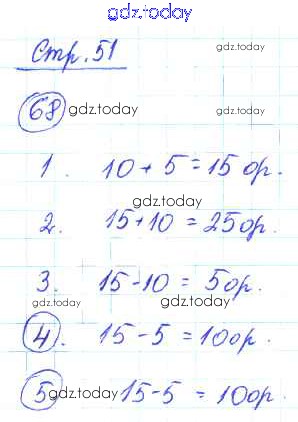 gdz.today
Стр. 51
gdz.today
68 gdz.today
1. 10 + 5 = 15 ор.
gdz.today
2. 15 + 10 = 25 ор.
gdz.today
3. 15 - 10 = 5 ор.
gdz.today gdz.today
4. 15 - 5 = 10 ор.
5 gdz.today 15 - 5 = 10 ор.